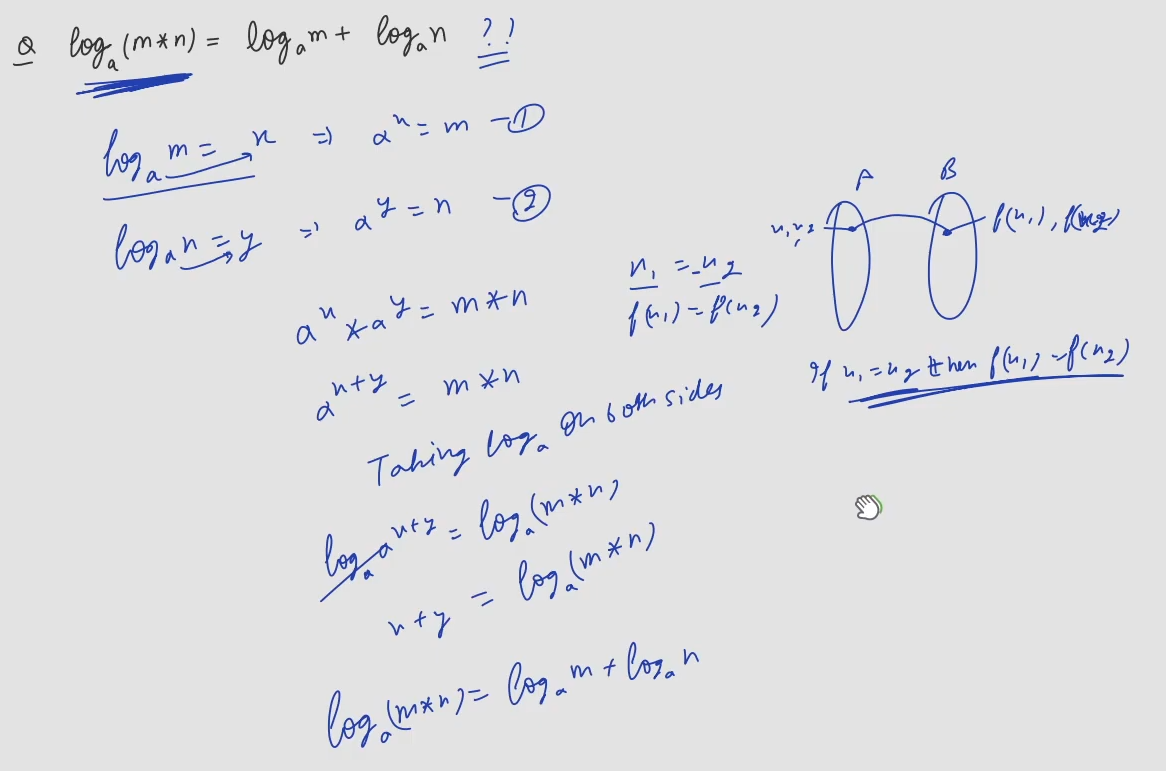 Q log_a (m*n) = log_a m + log_a n ??
log_a m = x ⇒ a^x = m - ①
log_a n = y ⇒ a^y = n - ②
a^x * a^y = m*n
a^(x+y) = m*n
Taking log_a on both sides
log_a a^(x+y) = log_a (m*n)
x+y = log_a (m*n)
log_a (m*n) = log_a m + log_a n
A B
x₁, x₂ f(x₁), f(x₂)
x₁ = x₂
f(x₁) = f(x₂)
If x₁ = x₂ then f(x₁) = f(x₂)